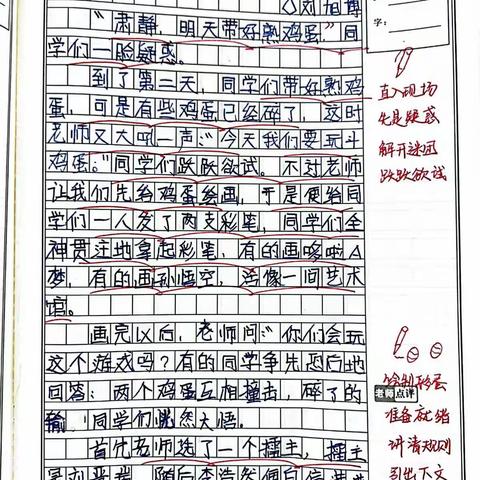 刘旭博
"肃静，明天带好熟鸡蛋"同
学们一脸疑惑。
到了第二天，同学们带好熟鸡
蛋，可是有些鸡蛋已经碎了，这时
老师又大吼一声："今天我们要玩斗
鸡蛋。"同学们跃跃欲试。不对老师
让我们先给鸡蛋绘画，于是便给同
学们一人发了两支彩笔，同学们全
神贯注地拿起彩笔，有的画哆啦A
梦，有的画孙悟空，活像一间艺术
馆。
画完以后，老师问："你们会玩
这个游戏吗？有的同学争先恐后地
回答：两个鸡蛋互相撞击，碎了的
输！同学们恍然大悟。
首先老师选了一个擂主，擂主
随后李浩然便自信满满
字：
直入现场
先是疑惑
解开谜团
跃跃欲试
绘制彩蛋
老师点评
准备就绪
讲清规则
引出下文